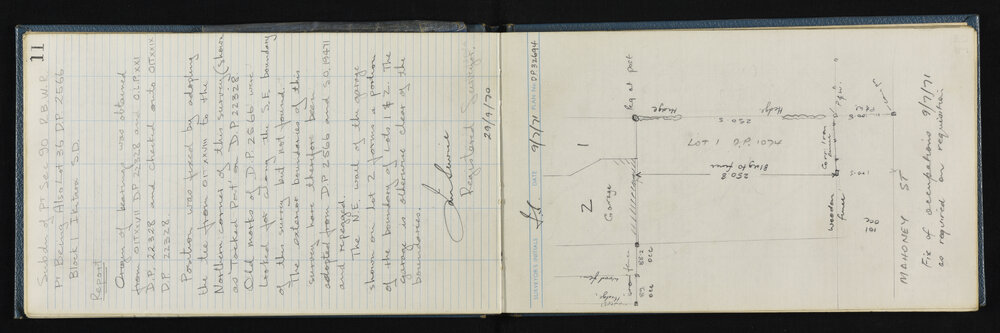 11
Subdn of Pt Sec 90 P.B.W.P.
Pt Being Also Lot 36 D.P. 2566
Block I Ikitara S.D.
Report
Origin of bearings was obtained
from OIT XXVII D.P. 22328 and O.I.P XXI
D.P. 22328 and checked onto OIT XXIX
D.P. 22328
Position was fixed by adopting
the tie from OIT XXVII to the
Northern corner of this survey (shown
as Tacked Post on D.P. 22328
Old marks of D.P. 2566 were
looked for along the S.E. boundary
of this survey but not found
The exterior boundaries of this
survey have therefore been
adopted from D.P 2566 and S.O. 19471
and repegged.
The N.E. wall of the garage
shown on Lot 2 forms a portion
of the boundary of Lots 1 & 2. The
garage is otherwise clear of the
boundaries.
Registered Surveyor.
29/9/70
SURVEYOR'S INITIALS
DATE 9/7/71
PLAN No. D.P 32694
peg at post
Hedge
Hedge
250 5
LOT 1 D.P.
Bldg to fence
250 8
1
2
Garage
Corr Iron
fence
Wooden
fence
P & W.
100
MAHONEY ST
Fix of occupations 9/7/71
as required on requisition